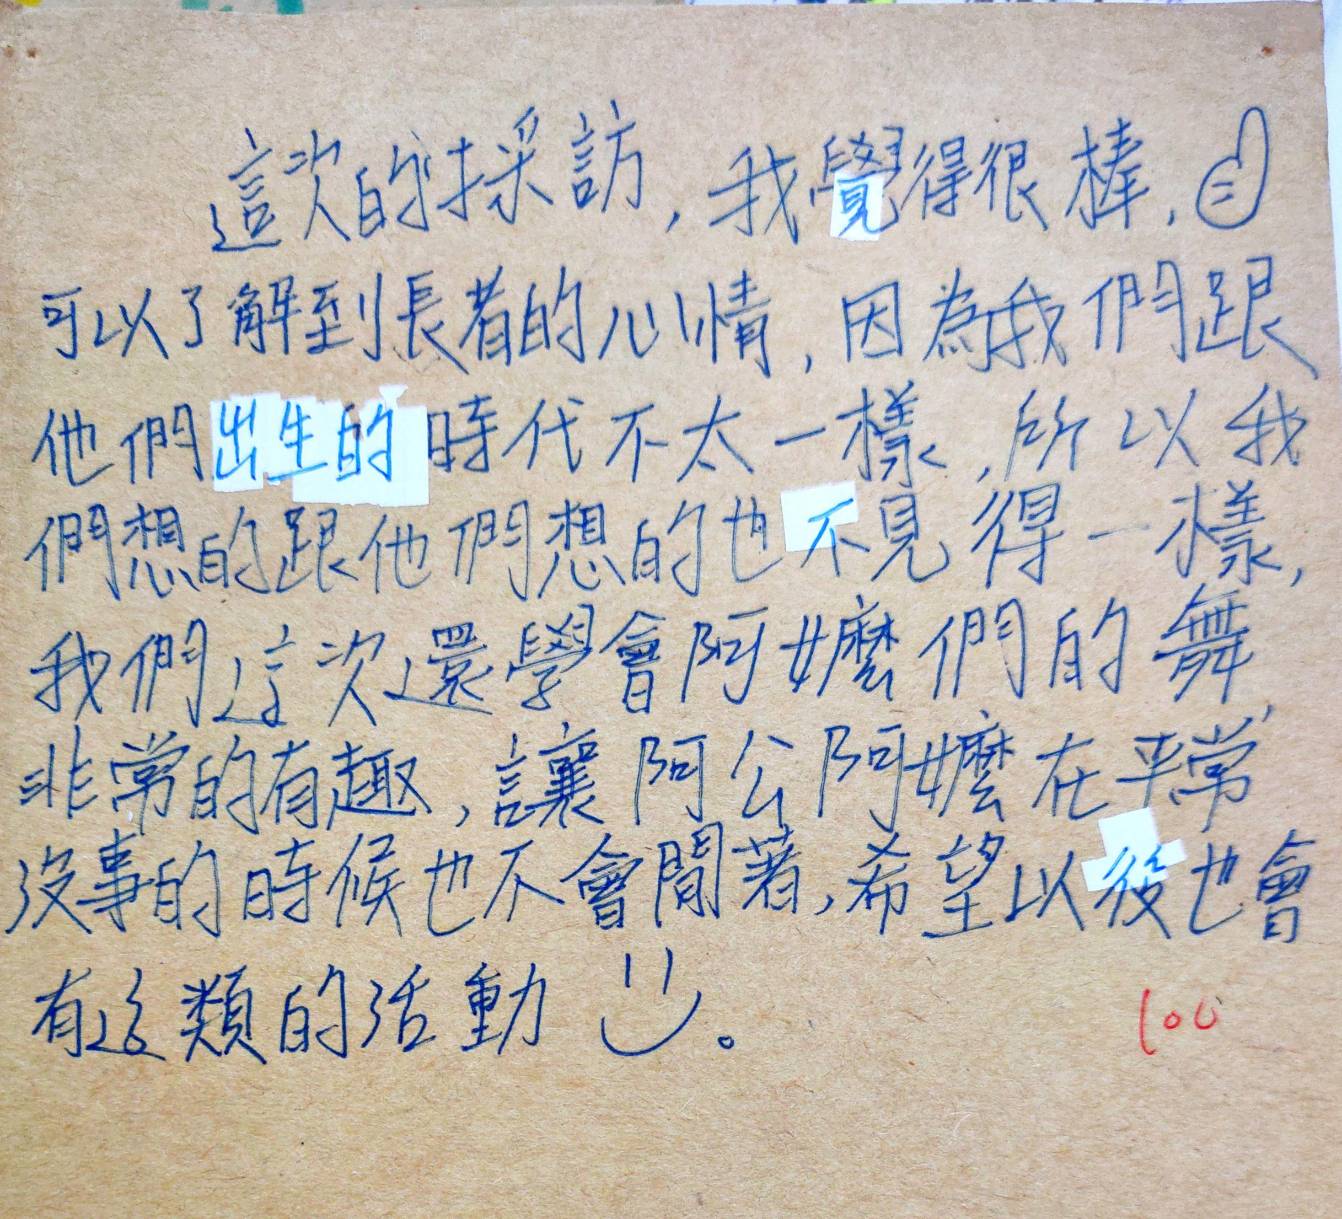 這次的採訪,我覺得很棒,
可以了解到長者的心情,因為我們跟
他們出生的時代不太一樣,所以我
們想的跟他們想的也不見得一樣,
我們這次還學會阿嬤們的舞,
非常的有趣,讓阿公阿嬤在平常
沒事的時候也不會閒著,希望以後也會
有這類的活動。
100